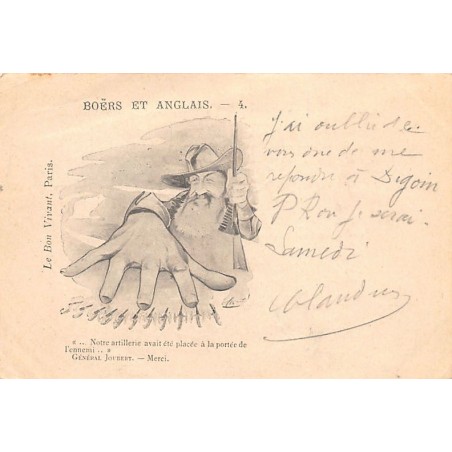 BOËRS ET ANGLAIS. — 4.
Le Bon Vivant, Paris.
« .. Notre artillerie avait été placée à la portée de
l'ennemi .. »
GÉNÉRAL JOUBERT. — Merci.
J'ai oublié de
vous dire de me
repondre à Digoin
P R ou je serai
Samedi